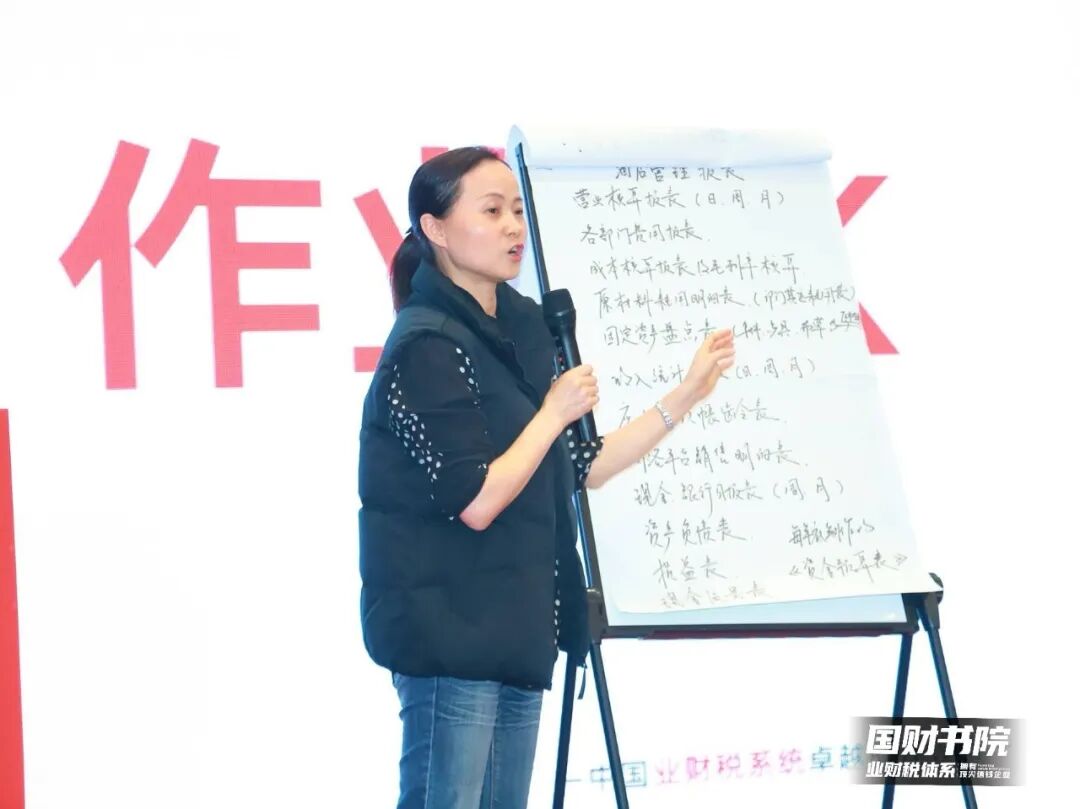 作业
酒店管理报表
营业核算报表（日、周、月）
各部门费用报表.
成本核算报表及毛利率核算
原材料耗用明细表
固定资产盘点表
收入统计 （日、周、月）
平台销售明细表.
现金.银行日报表（周、月）
资产负债表.
损益表
《资金预算表》
现金流量表
中国业财税系统卓越
国财书院
业财税体系 拥有
顶尖赚钱企业